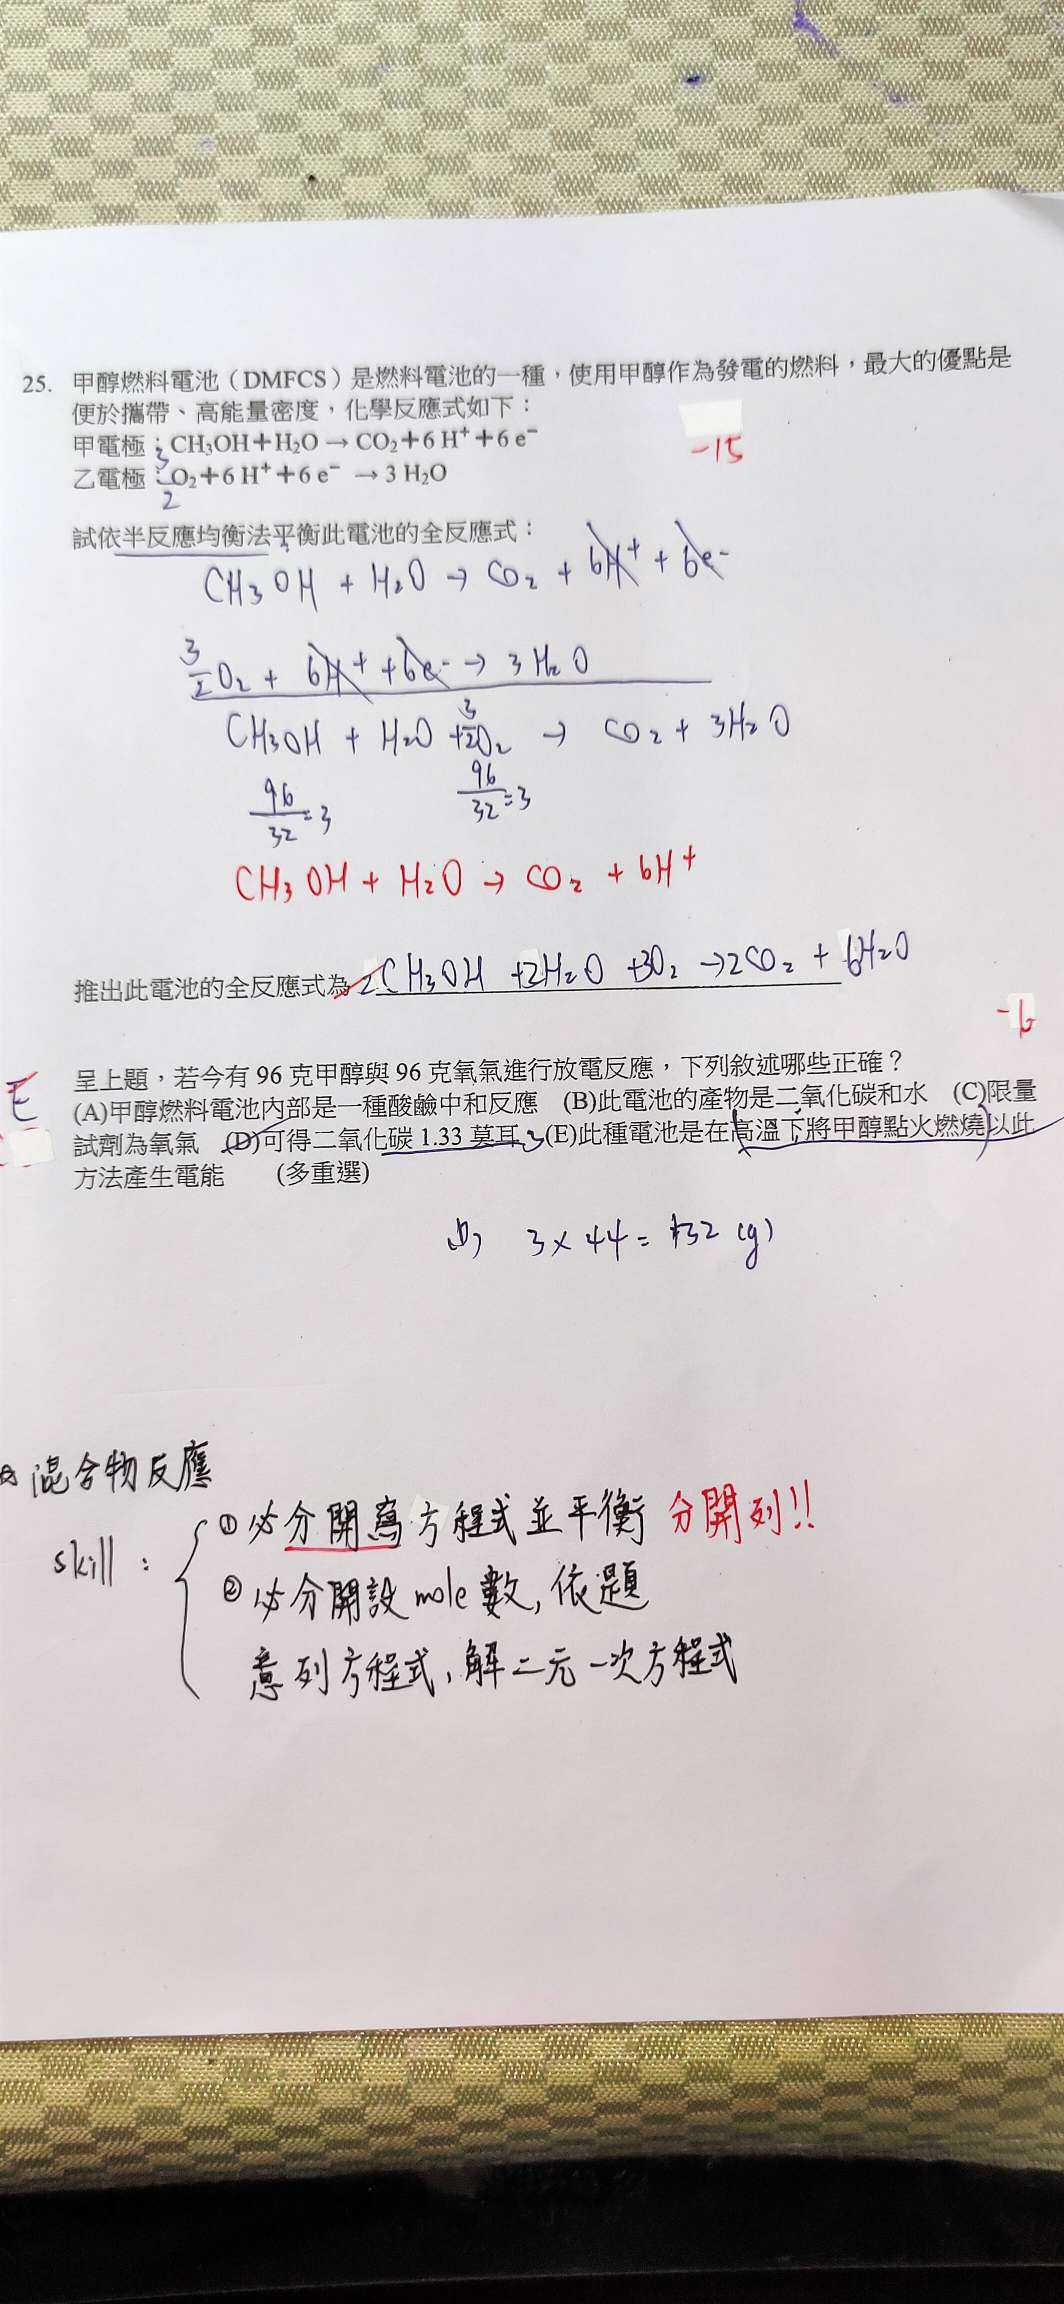 25. 甲醇燃料電池（DMFCS）是燃料電池的一種，使用甲醇作為發電的燃料，最大的優點是
便於攜帶、高能量密度，化學反應式如下：
-15
甲電極：CH₃OH＋H₂O → CO₂＋6 H⁺＋6 e⁻
乙電極：3/2 O₂＋6 H⁺＋6 e⁻ → 3 H₂O
試依半反應均衡法平衡此電池的全反應式：
CH₃OH + H₂O → CO₂ + 6H⁺ + 6e⁻
3/2 O₂ + 6H⁺ + 6e⁻ → 3H₂O
CH₃OH + H₂O + 3/2 O₂ → CO₂ + 3H₂O
96/32 = 3 96/32 = 3
CH₃OH + H₂O → CO₂ + 6H⁺
推出此電池的全反應式為 2CH₃OH + 2H₂O + 3O₂ → 2CO₂ + 6H₂O
呈上題，若今有 96 克甲醇與 96 克氧氣進行放電反應，下列敘述哪些正確？
E
(A)甲醇燃料電池內部是一種酸鹼中和反應 (B)此電池的產物是二氧化碳和水 (C)限量
試劑為氧氣 (D)可得二氧化碳 1.33 莫耳 3 (E)此種電池是在高溫下將甲醇點火燃燒以此
方法產生電能 (多重選)
(D) 3 × 44 = 132 (g)
混合物反應
skill : ① 必分開寫方程式並平衡 分開列!!
② 必分開設 mole 數, 依題
意列方程式, 解二元一次方程式